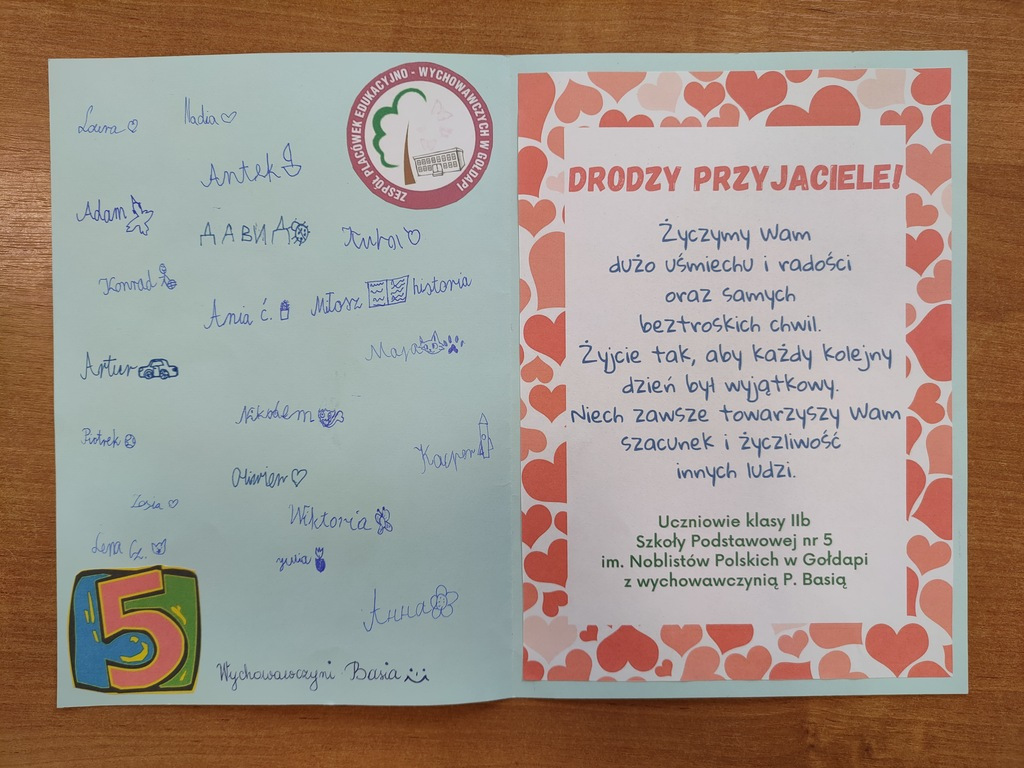 ZESPÓŁ PLACÓWEK EDUKACYJNO - WYCHOWAWCZYCH W GOŁDAPI
Laura
Nadia
Antek
Adam
ДАВИД
Kuba
Konrad
Ania ć.
Miłosz historia
Maja
Artur
Nikodem
Piotrek
Kacper
Oliwier
Zosia
Wiktoria
Lena Cz.
Julia
Анна
5
Wychowawczyni Basia
DRODZY PRZYJACIELE!
Życzymy Wam
dużo uśmiechu i radości
oraz samych
beztroskich chwil.
Żyjcie tak, aby każdy kolejny
dzień był wyjątkowy.
Niech zawsze towarzyszy Wam
szacunek i życzliwość
innych ludzi.
Uczniowie klasy IIb
Szkoły Podstawowej nr 5
im. Noblistów Polskich w Gołdapi
z wychowawczynią P. Basią